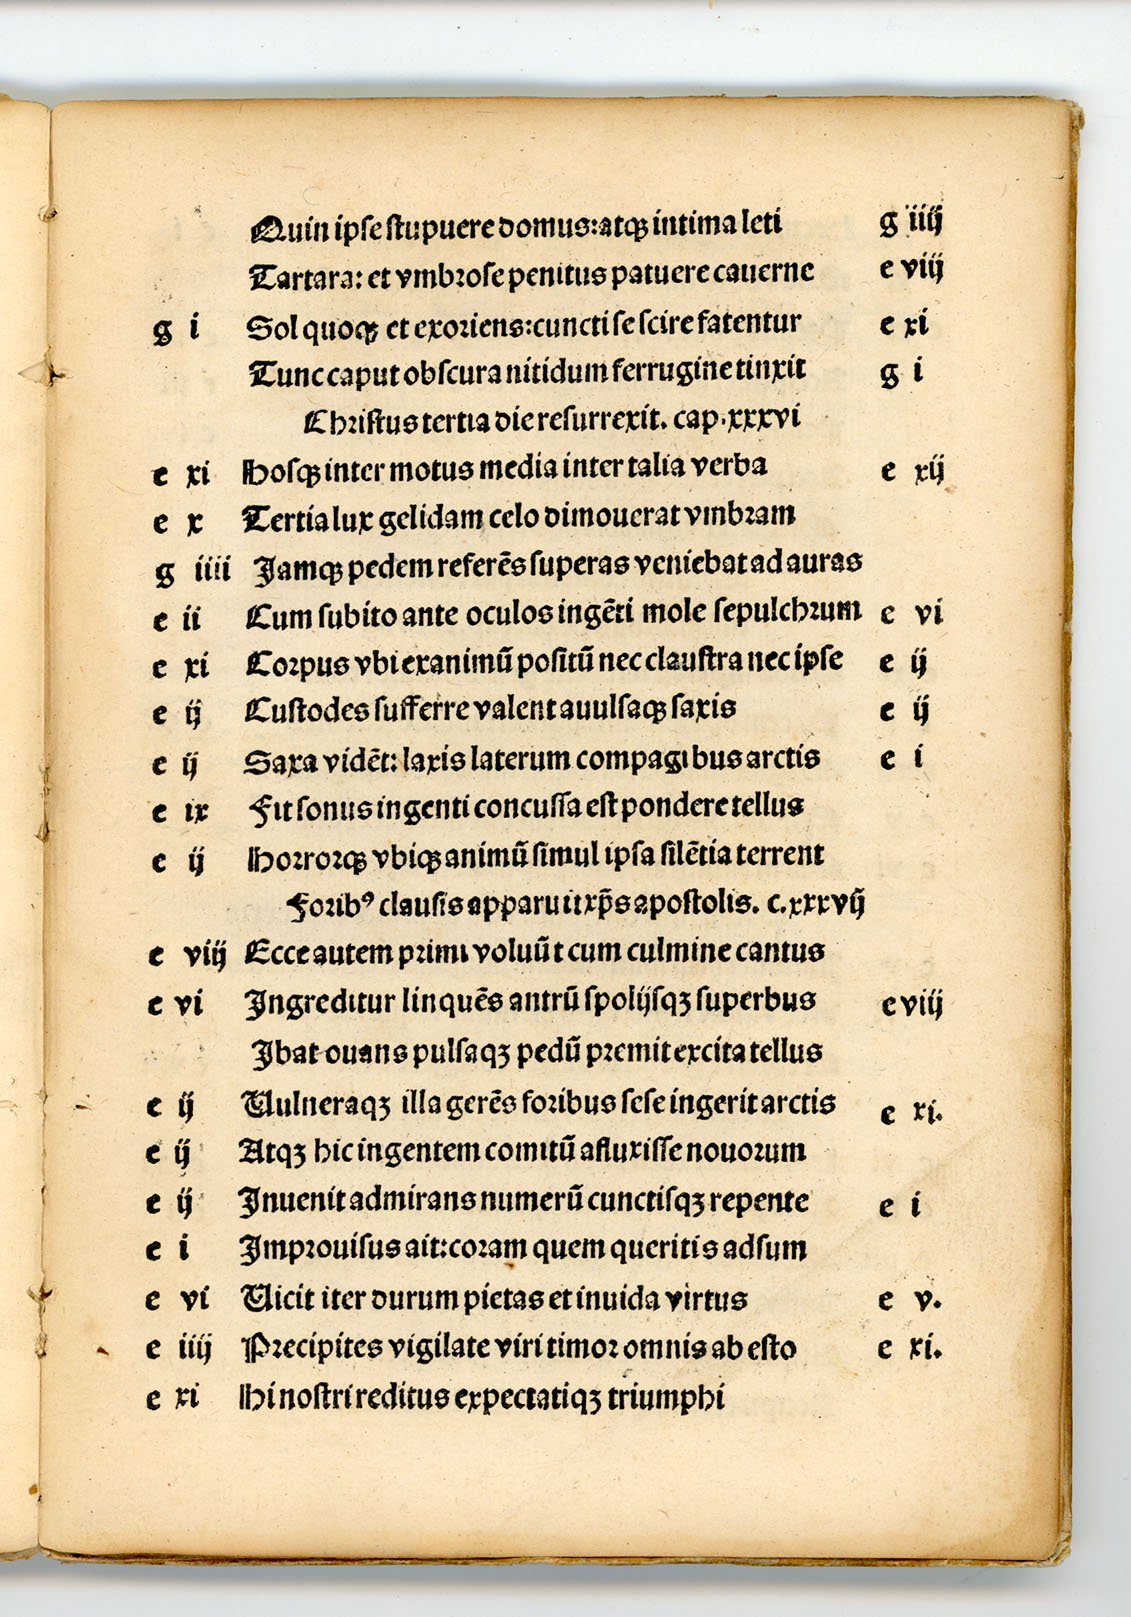 Quin ipſe ſtupuere domus:atqꝫ intima leti g iiij
Tartara: et vmbroſe penitus patuere cauerne e viij
g i Sol quoqꝫ et exoriens:cuncti ſe ſcire fatentur e xi
Tunc caput obſcura nitidum ferrugine tinxit g i
Chriſtus tertia die reſurrexit. cap.xxxvi
e xi Hoſqꝫ inter motus media inter talia verba e xij
e x Tertia lux gelidam celo dimouerat vmbram
g iiii Jamqꝫ pedem referẽs ſuperas veniebat ad auras
e ii Cum ſubito ante oculos ingẽti mole ſepulchrum e vi
e xi Corpus vbi exanimũ poſitũ nec clauſtra nec ipſe e ij
e ij Cuſtodes ſufferre valent auulſaqꝫ ſaxis e ij
e ij Saxa vidẽt: laxis laterum compagibus arctis e i
e ix Fit ſonus ingenti concuſſa eſt pondere tellus
e ij Horrorqꝫ vbiqꝫ animũ ſimul ipſa ſilẽtia terrent
Foribꝰ clauſis apparuit xp̃s apoſtolis. c.xxxvij
e viij Ecce autem primi voluũt cum culmine cantus
e vi Jngreditur linquẽs antrũ ſpolijſqꝫ ſuperbus e viij
Jbat ouans pulſaqꝫ pedũ premit excita tellus
e ij Uulneraqꝫ illa gerẽs foribus ſeſe ingerit arctis e xi.
e ij Atqꝫ hic ingentem comitũ afluxiſſe nouorum
e ij Jnuenit admirans numerũ cunctiſqꝫ repente e i
e i Jmprouiſus ait:coram quem queritis adſum
e vi Uicit iter durum pietas et inuida virtus e v.
e iiij Precipites vigilate viri timor omnis ab eſto e xi.
e xi Hi noſtri reditus expectatiqꝫ triumphi